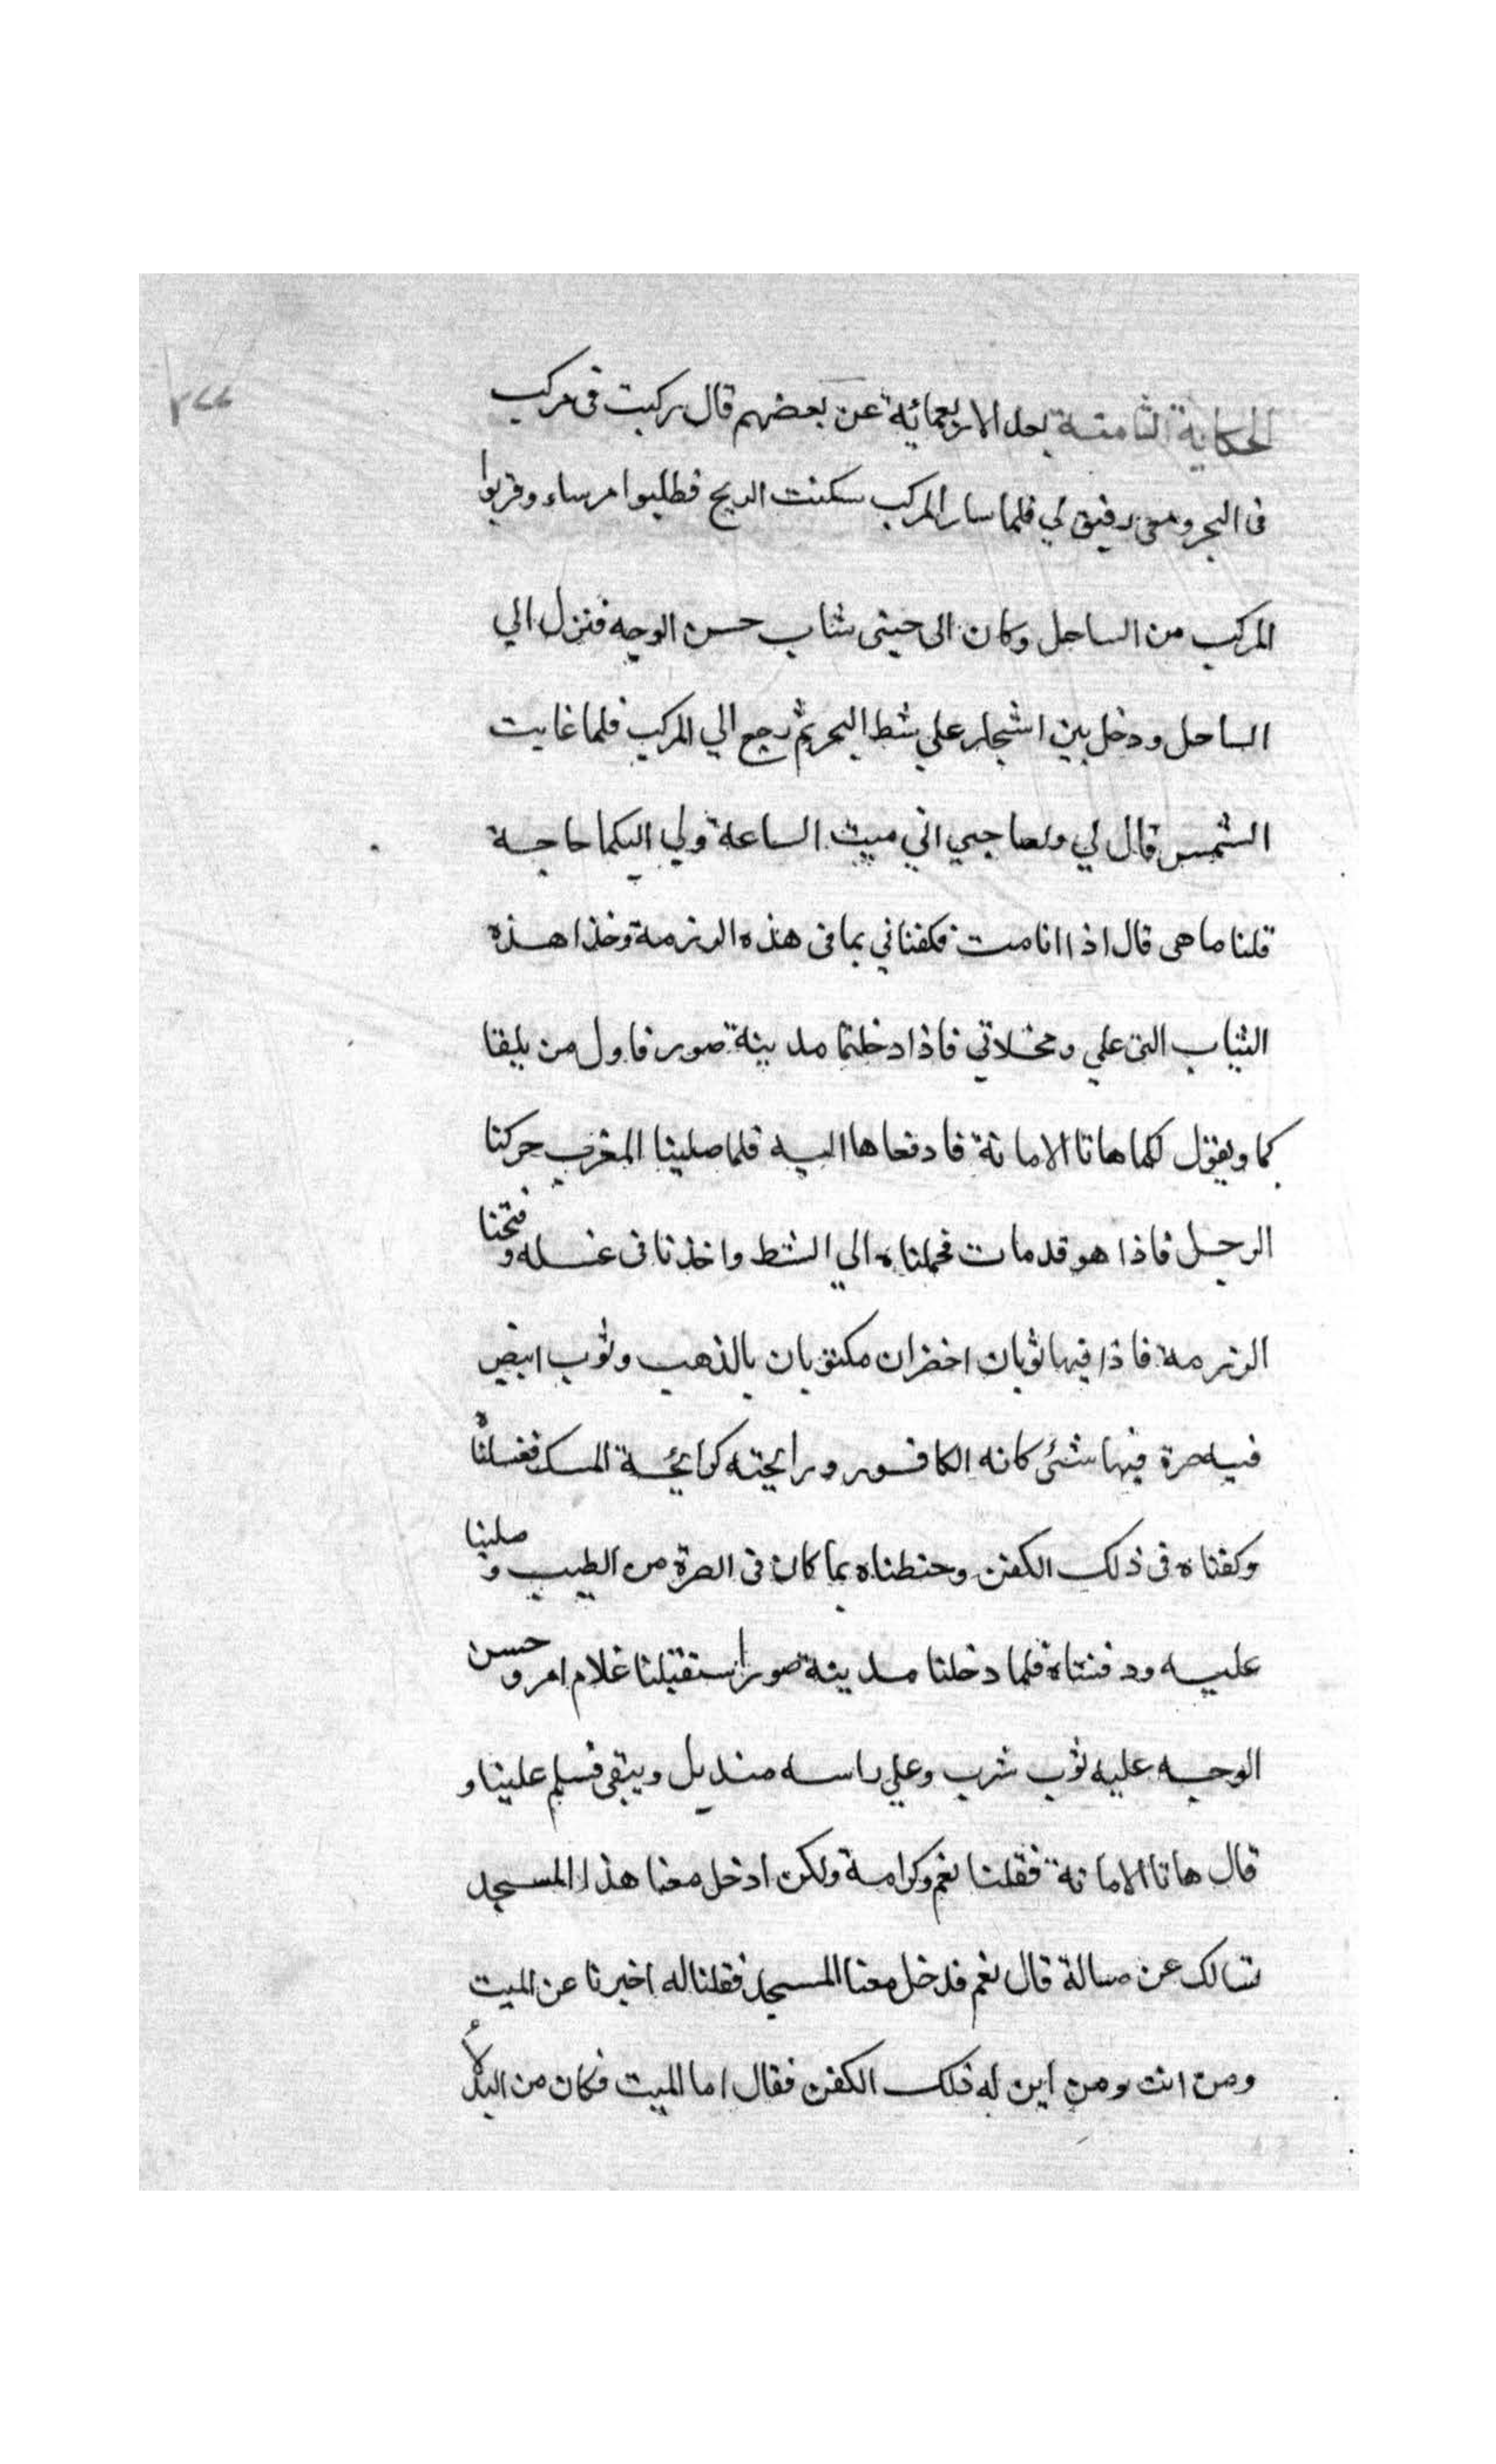 ٢٧٧
الحكاية الثامنة بعد الاربعمائة عن بعضهم قال ركبت فى مركب
فى البحر ومعى رفيق لي فلما سار المركب سكنت الريح فطلبوا مرساء وقربوا
المركب من الساحل وكان الى جنبى شاب حسن الوجه فنزل الي
الساحل ودخل بين اشجار علي شط البحر ثم رجع الي المركب فلما غابت
الشمس قال لي ولصاحبي اني ميت الساعة ولي اليكما حاجة
قلنا ما هى قال اذا انا مت فكفناني بما فى هذه الرزمة وخذا هذه
الثياب التى علي ومخلاتي فاذا دخلتما مدينة صور فاول من يلقا
كما ويقول لكما هاتا الامانة فادفعاها اليه فلما صلينا المغرب حركنا
الرجل فاذا هو قد مات فحملناه الي الشط واخذنا فى غسله وفتحنا
الرزمة فاذا فيها ثوبان اخضران مكتوبان بالذهب وثوب ابيض
فيه صرة فيها شئى كانه الكافور ورايحته كرايحة المسك فغسلناه
وكفناه فى ذلك الكفن وحنطناه بما كان فى الصرة من الطيب وصلينا
عليه ودفنتاه فلما دخلنا مدينة صور استقبلنا غلام امرد حسن
الوجه عليه ثوب شرب وعلي راسه منديل ديبقى فسلم علينا و
قال هاتا الامانة فقلنا نعم وكرامة ولكن ادخل معنا هذا المسجد
نسالك عن مسالة قال نعم فدخل معنا المسجد فقلنا له اخبرنا عن الميت
ومن انت ومن اين له ذلك الكفن فقال اما الميت فكان من البدلاء